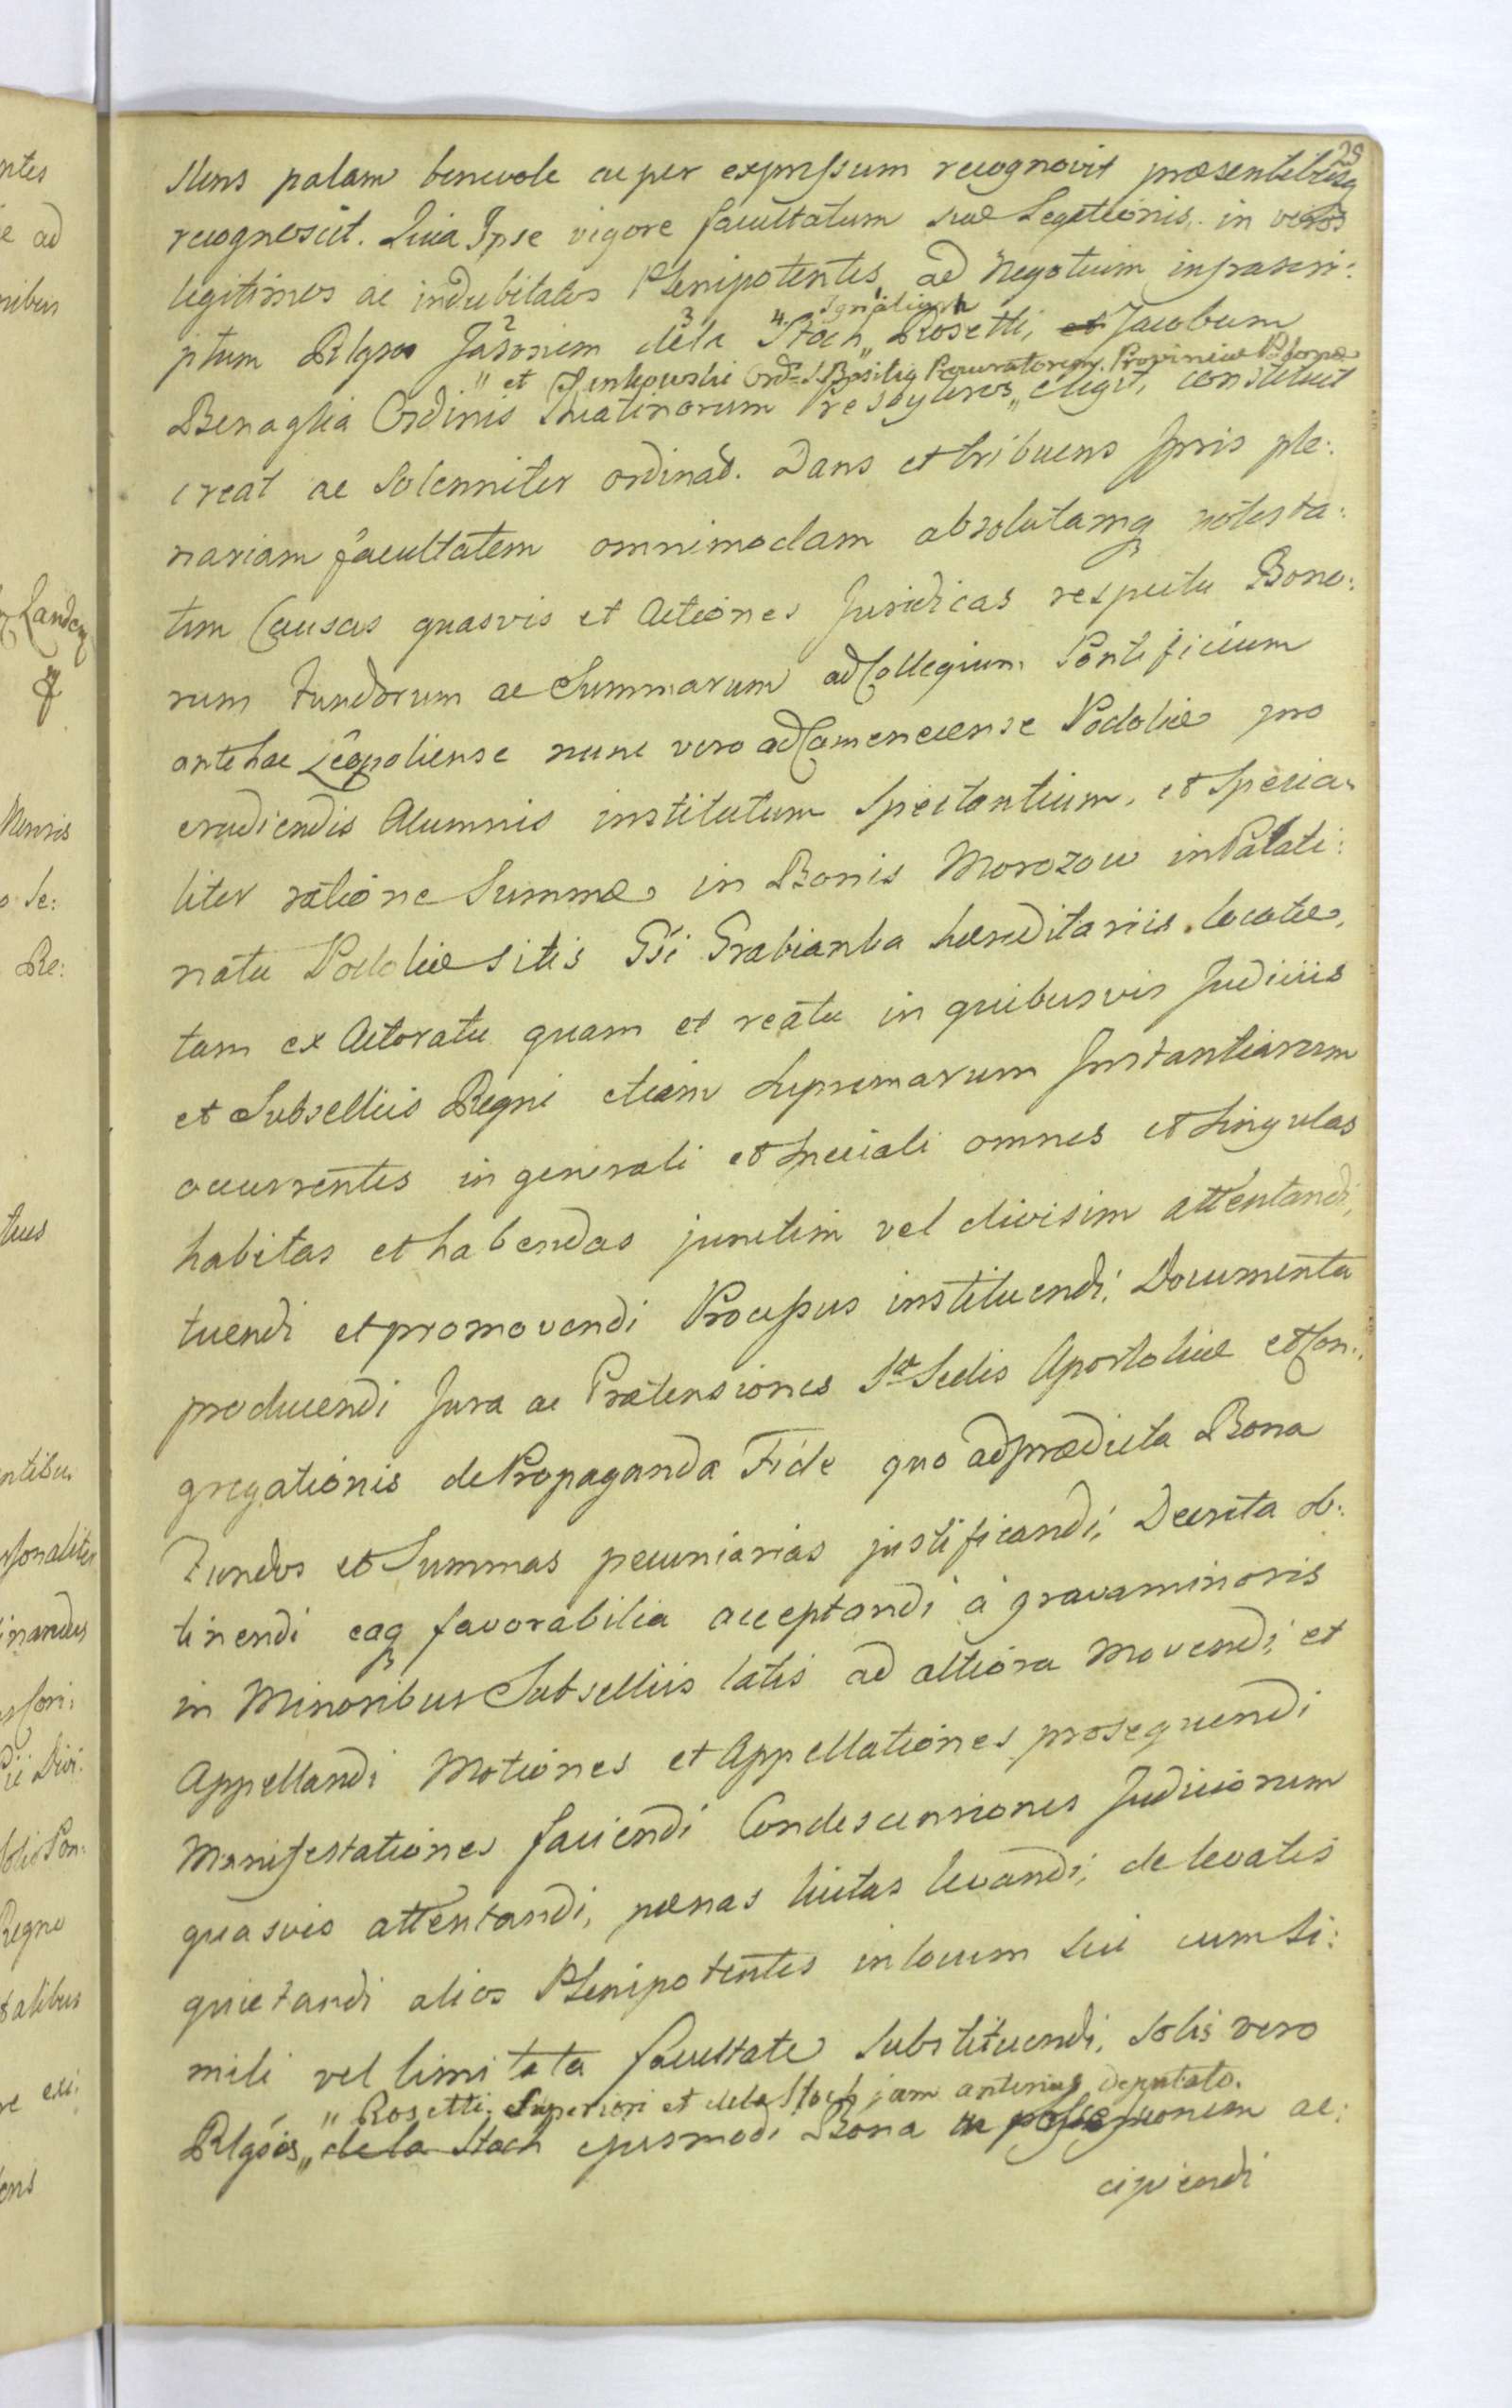 29
stens palam benevole ac per expressum recognovit præsentibusq
recognoscit. Quia Ipse vigore facultatum suæ Legationis, in veros
legitimos ac indubitatos Plenipotentes ad Negotium infrascri:
Ignatium
2 3 4.
ptum Rlgsos Jasonem dela Stoch „ Rosetti, et Jacobum
" et Ord. S. Basilij Procuratorem Provinciæ
Benaglia Ordinis Theatinorum Presbyteros „ elegit, constituit
creat ac Solenniter ordinat. Dans et tribuens Ipsis ple:
nariam facultatem omnimodam absolutamq potesta:
tem Causas quasvis et Actiones Juridicas respectu Bono:
rum Fundorum ac Summarum ad Collegium Pontificium
antehac Leopoliense nunc vero ad Camenecense Podoliæ pro
erudiendis Alumnis institutum Spectantium, et Specia:
liter ratione Summæ in Bonis Morozow in Palati:
natu Podoliæ sitis Gsi Grabianka hæreditariis locatæ,
tam ex Actoratu quam et reatu in quibusvis Judiciis
et Subselliis Regni etiam Supremarum Instantiarum
occurrentes in generali et speciali omnes et Singulas
habitas et habendas junctim vel divisim attentandi,
tuendi et promovendi Processus instituendi, Documenta
producendi Jura ac Prætensiones Stæ Sedis Apostolicæ et Con:
gregationis de Propaganda Fide quo ad prædicta Bona
Fundos et Summas pecuniarias justificandi, Decreta ob:
tinendi eaq favorabilia acceptandi a gravaminosis
in Minoribus Subselliis latis ad altiora Movendi et
Appellandi Motiones et Appellationes prosequendi
Manifestationes faciendi Condescensiones Judiciorum
quasvis attentandi, pœnas luitas levandi, de levatis
quietandi alios Plenipotentes in locum sui cum si:
mili vel limitata facultate Substituendi, Solis vero
" Rosetti Superiori et dela Stoch jam anterius deputato.
Rlgsis „ de la Stoch ejusmodi Bona in possessionem ac:
cipiendi
ntes
e ad
nibus
Landem
Mensis
o Se:
Re:
tuus
entibus
rsonaliter
inandus
Regno
talibus
ens